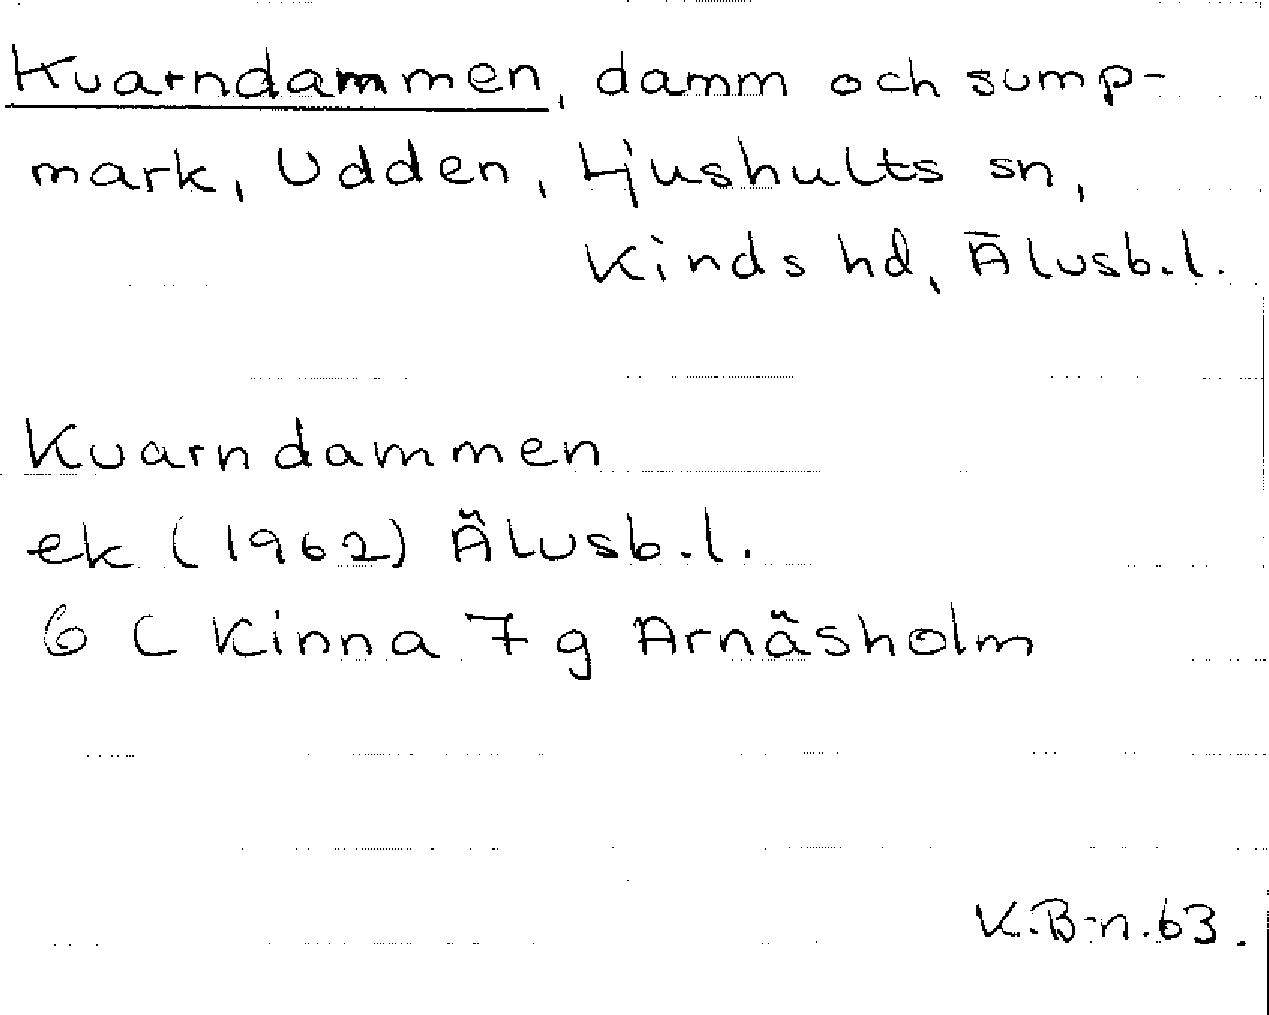 Kvarndammen, damm och sump-
mark, Udden, Ljushults sn,
Kinds hd, Älvsb.l.
Kvarndammen
ek (1962) Älvsb.l.
6 C Kinna 7 g Arnäsholm
K.B-n.63.